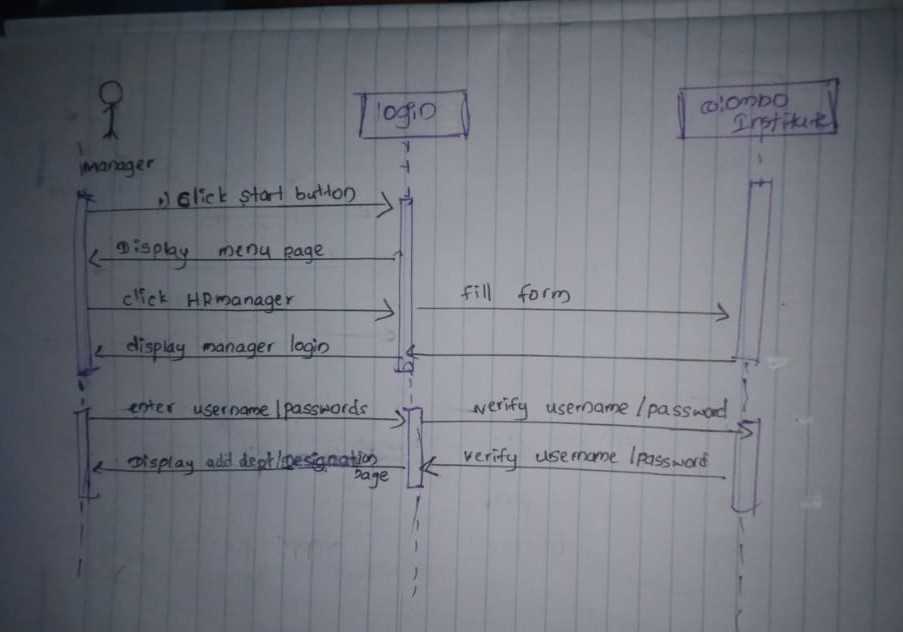 login
Colombo
Institute
manager
1) Click start button
Display menu page
click HR manager
fill form
display manager login
enter username/passwords
verify username/password
Display add dept/Designation
page
verify username/password